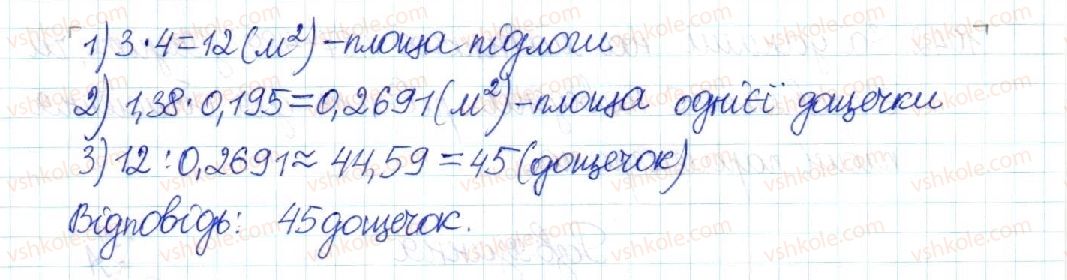 1) 3·4=12(м²)-площа підлоги
2) 1,38·0,195=0,2691(м²)-площа однієї дощечки
3) 12:0,2691≈44,59=45(дощечок)
Відповідь: 45 дощечок.